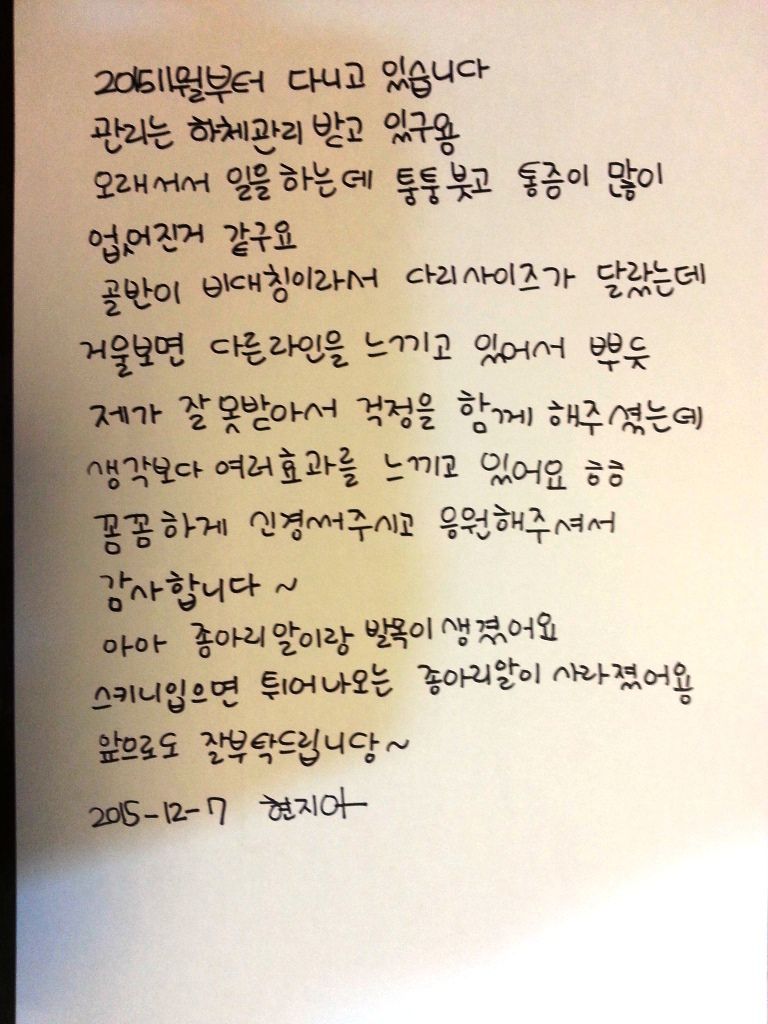 201511월부터 다니고 있습니다
관리는 하체관리 받고 있구용
오래서서 일을하는데 퉁퉁붓고 통증이 많이
없어진거 같구요
골반이 비대칭이라서 다리사이즈가 달랐는데
거울보면 다른라인을 느끼고 있어서 뿌듯
제가 잘못받아서 걱정을 함께 해주셨는데
생각보다 여러효과를 느끼고 있어요 ㅎㅎ
꼼꼼하게 신경써주시고 응원해주셔서
감사합니다~
아아 종아리알이랑 발목이생겼어요
스키니입으면 튀어나오는 종아리알이 사라졌어용
앞으로도 잘부탁드립니당~
2015-12-7 현지아